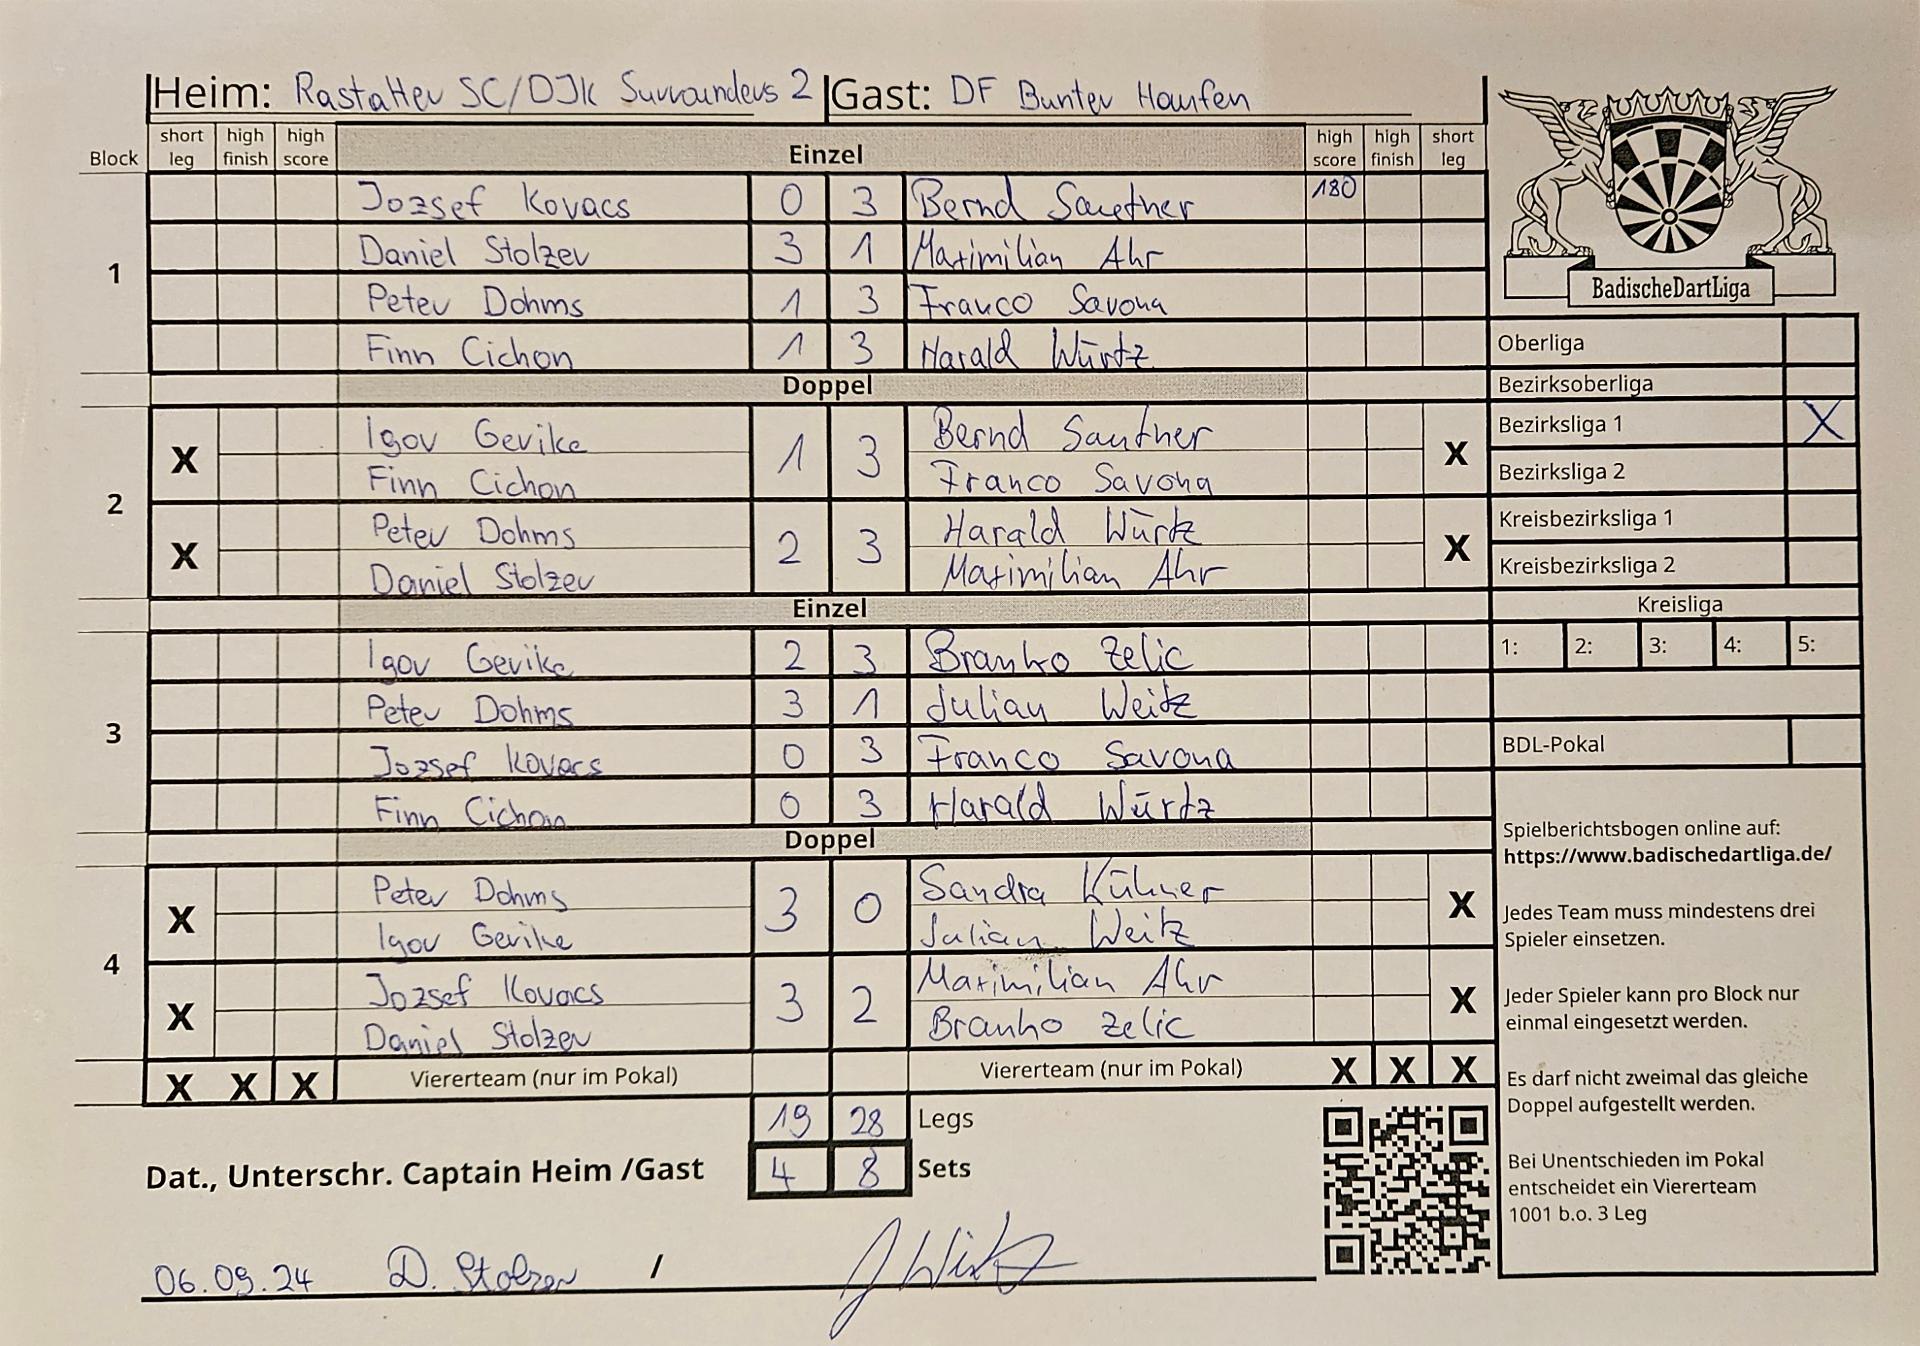 Heim: Rastatter SC/DJK Surrounders 2 Gast: DF Bunter Haufen
Block short leg high finish high score Einzel high score high finish short leg
1
Jozsef Kovacs 0 3 Bernd Sauther 180
Daniel Stolzer 3 1 Maximilian Ahr
Peter Dohms 1 3 Franco Savona
Finn Cichon 1 3 Harald Würtz
Doppel
2
X Igor Gerike 1 3 Bernd Sauther X
Finn Cichon Franco Savona
X Peter Dohms 2 3 Harald Würtz X
Daniel Stolzer Maximilian Ahr
Einzel
3
Igor Gerike 2 3 Branko Zelic
Peter Dohms 3 1 Julian Weitz
Jozsef Kovacs 0 3 Franco Savona
Finn Cichon 0 3 Harald Würtz
Doppel
4
X Peter Dohms 3 0 Sandra Kühner X
Igor Gerike Julian Weitz
X Jozsef Kovacs 3 2 Maximilian Ahr X
Daniel Stolzer Branko Zelic
X X X Viererteam (nur im Pokal) Viererteam (nur im Pokal) X X X
19 28 Legs
Dat., Unterschr. Captain Heim /Gast 4 8 Sets
06.09.24 D. Stolzer /
BadischeDartLiga
Oberliga
Bezirksoberliga
Bezirksliga 1 X
Bezirksliga 2
Kreisbezirksliga 1
Kreisbezirksliga 2
Kreisliga
1: 2: 3: 4: 5:
BDL-Pokal
Spielberichtsbogen online auf:
https://www.badischedartliga.de/
Jedes Team muss mindestens drei
Spieler einsetzen.
Jeder Spieler kann pro Block nur
einmal eingesetzt werden.
Es darf nicht zweimal das gleiche
Doppel aufgestellt werden.
Bei Unentschieden im Pokal
entscheidet ein Viererteam
1001 b.o. 3 Leg